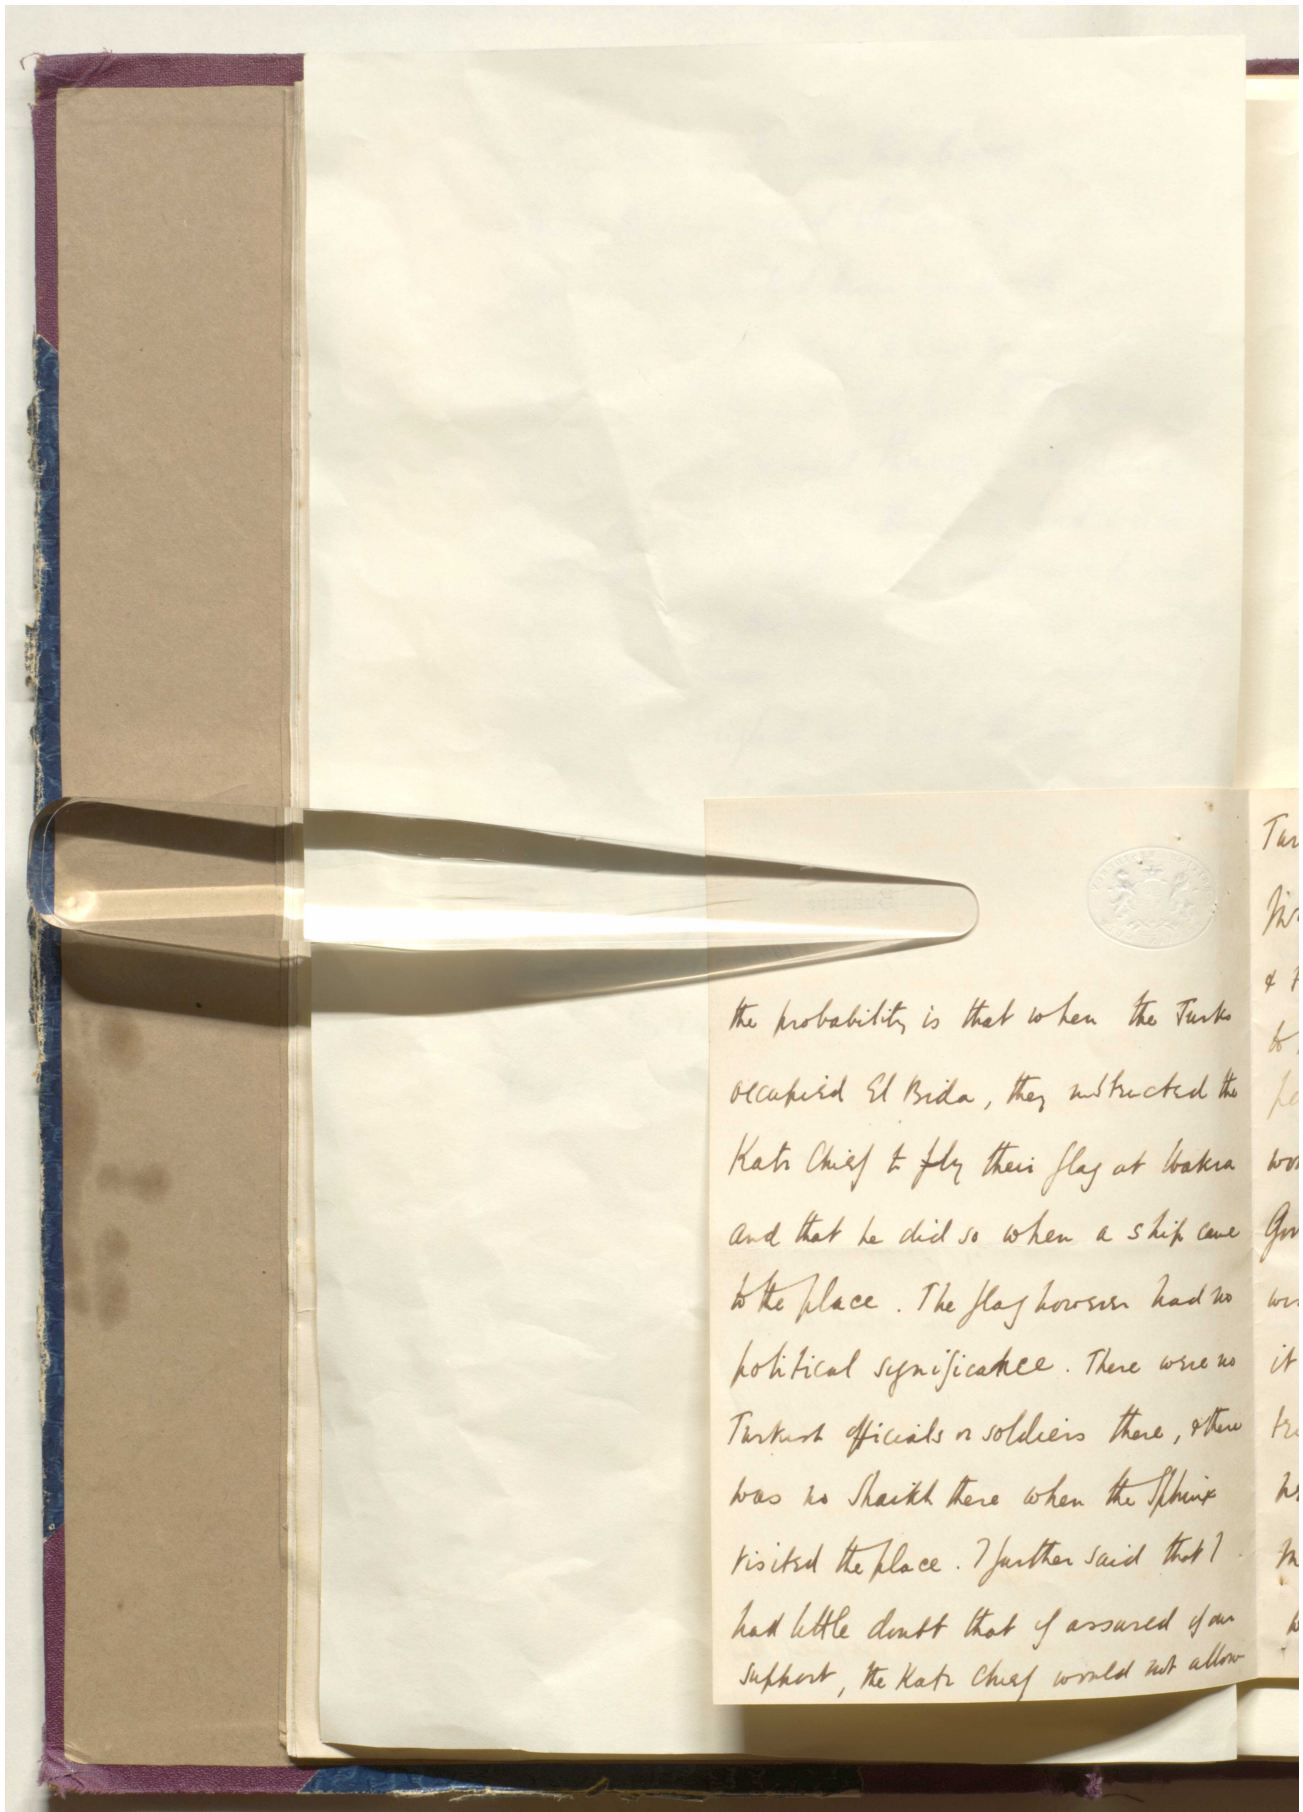 the probability is that when the Turks
occupied El Bida, they instructed the
Katr Chief to fly their flag at Wakra
and that he did so when a ship came
to the place. The flag however had no
political significance. There were no
Turkish officials or soldiers there, & there
was no Shaikh there when the Sphinx
visited the place. I further said that I
had little doubt that if assured of our
support, the Katr Chief would not allow
Tur
& 
to
wor
Gov
it